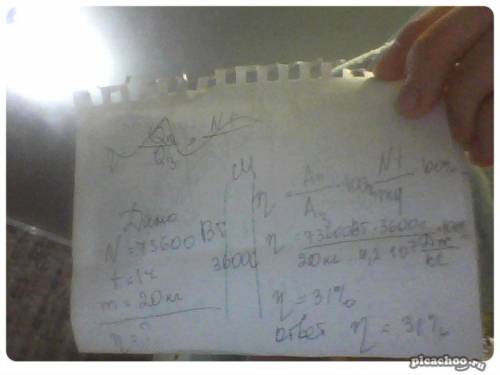 Qп/Qз = Nt
Дано
N = 73600 Вт
t = 1ч
m = 20 кг
η = ?
СИ
3600с
η = Aп/Aз · 100% = Nt/mq · 100%
η = 73600Вт · 3600с / 20кг · 4,2 · 10⁷ Дж/кг · 100% =
η = 31%
Ответ η = 31%
picachoo.ru